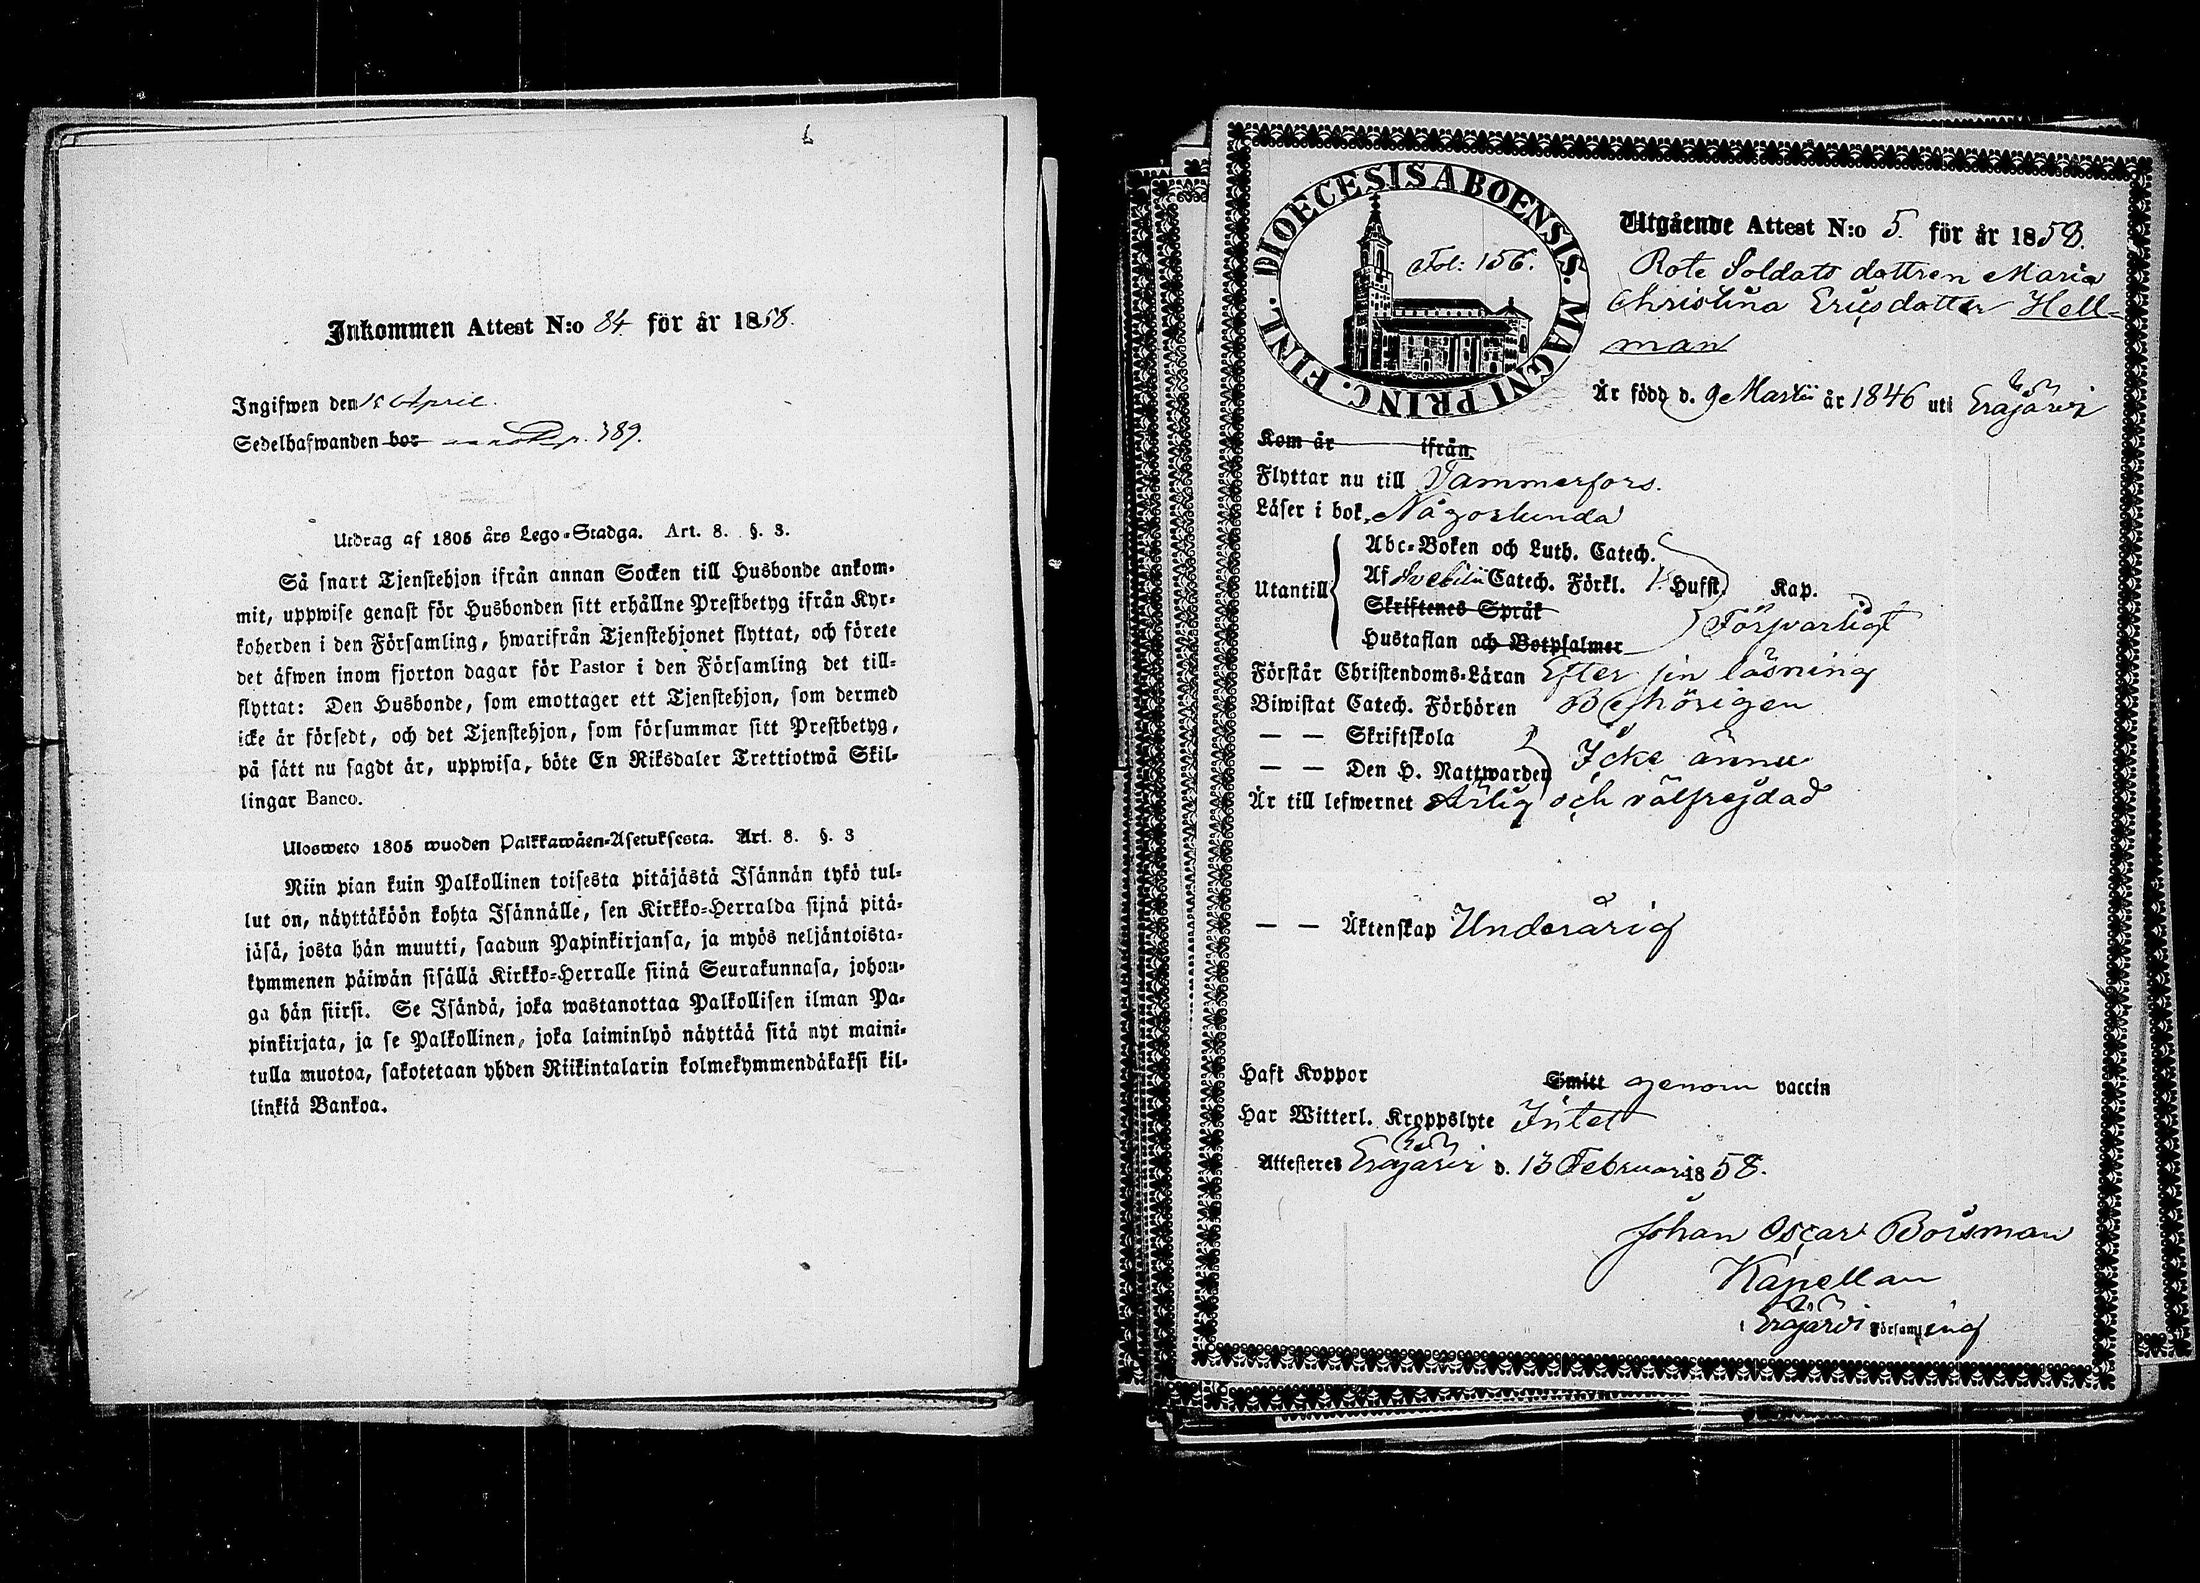 Inkommen Attest N:o 84 för år 1858.
Ingifwen den 15 April.
Sedelhafwanden bor 389.
Utdrag af 1805 års Lego-Stadga. Art. 8. §. 3.
Så snart Tjenstehjon ifrån annan Socken till Husbonde ankom-
mit, uppwise genast för Husbonden sitt erhållne Prestbetyg ifrån Kyr-
koherden i den Församling, hwarifrån Tjenstehjonet flyttat, och förete
det äfwen inom fjorton dagar för Pastor i den Församling det till-
flyttat: Den Husbonde, som emottager ett Tjenstehjon, som dermed
icke är försedt, och det Tjenstehjon, som försummar sitt Prestbetyg,
på sätt nu sagdt är, uppwisa, böte En Riksdaler Trettiotwå Skil-
lingar Banco.
Ulosweto 1805 wuoden Palkkawäen-Asetuksesta. Art. 8. §. 3
Niin pian kuin Palkollinen toisesta pitäjästä Isännän tykö tul-
lut on, näyttäköön kohta Isännälle, sen Kirkko-Herralda sijnä pitä-
jäsä, josta hän muutti, saadun Papinkirjansa, ja myös neljäntoista-
kymmenen päiwän sisällä Kirkko-Herralle siinä Seurakunnasa, johon-
ga hän siirsi. Se Isändä, joka wastanottaa Palkollisen ilman Pa-
pinkirjata, ja se Palkollinen, joka laiminlyö näyttää sitä nyt maini-
tulla muotoa, sakotetaan yhden Riikintalarin kolmekymmendäkaksi kil-
linkiä Bankoa.
DIOECESIS ABOENSIS. MAGNI PRINC. FINL.
Fol: 156.
Utgående Attest N:o 5. för år 1858.
Rote Soldats dottren Maria
Christina Ericsdotter Hell-
man
Är född d. 9 Martii år 1846 uti Eräjärvi
Kom år ifrån
Flyttar nu till Tammerfors.
Läser i bok Någorlunda
Utantill
Abc-Boken och Luth. Catech.
Af Svebilii Catech. Förkl. Hufst. Kap.
Skriftenes Språk
Försvarligt
Hustaflan och Botpsalmer
Förstår Christendoms-Läran Efter sin läsning
Biwistat Catech. Förhören Behörigen
— — Skriftskola
Icke ännu
— — Den H. Nattwarden
Är till lefwernet Ärlig och välfrejdad
— — Äktenskap Underårig
Haft Koppor Smitt genom vaccin
Har Witterl. Kroppslyte Intet
Attesteres Eräjärvi d. 13 Februari 1858.
Johan Oscar Boisman
Kapellan
i Eräjärvi Församling